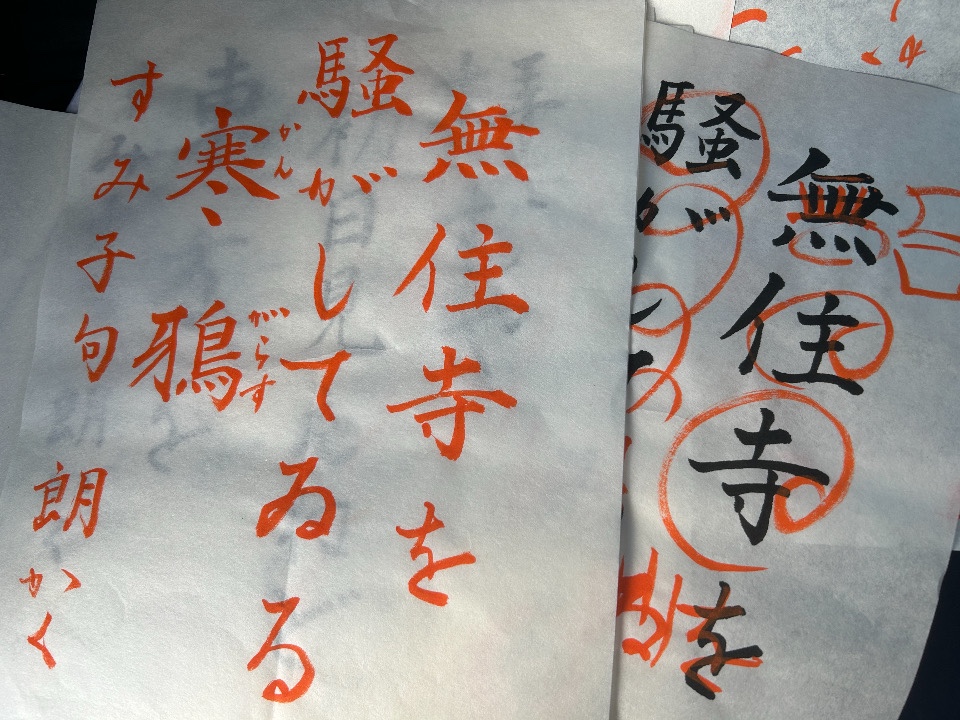 無住寺を
騒が
無住寺を
騒がしてゐる
かんがらす
寒鴉
すみ子句 朗かく